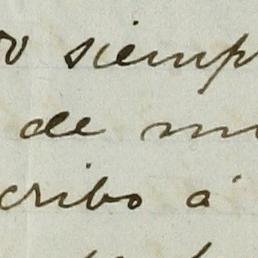 ro siemp
de mi
cribo á